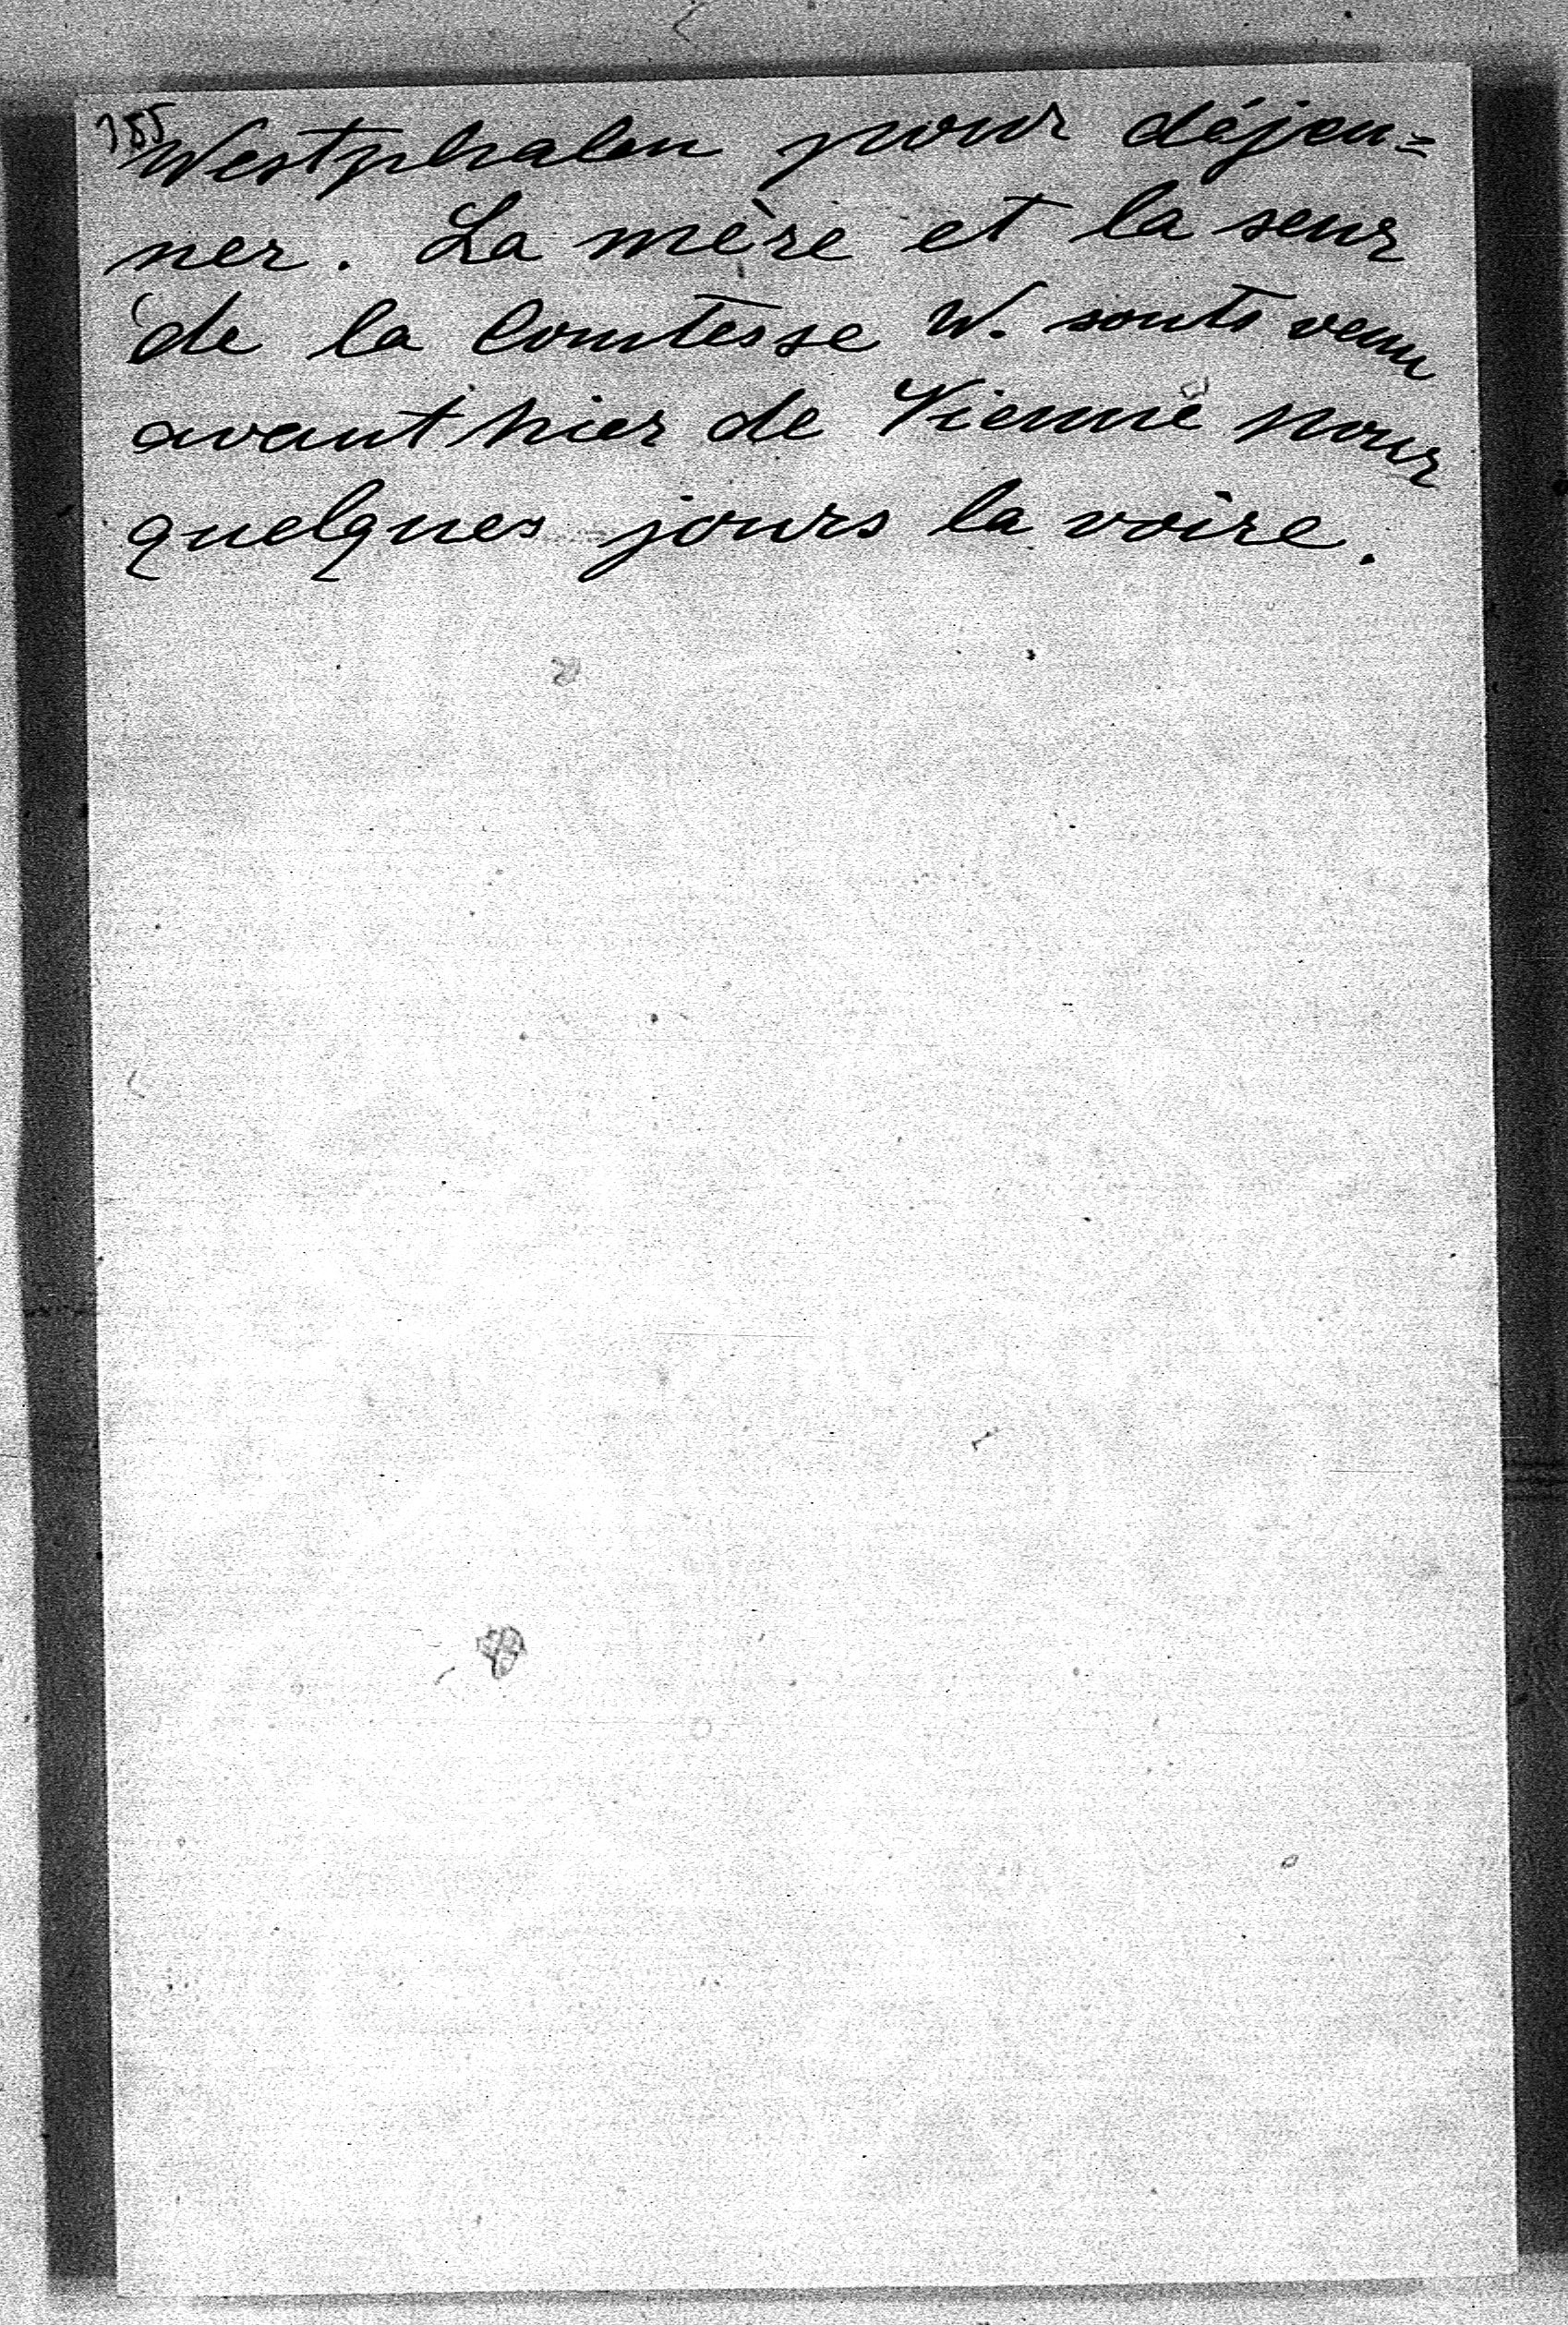 185
Westphalen pour déjeu=
ner. La mère et la seur
de la Comtesse W. sonts venu
avant hier de Vienne pour
quelques jours la voire.